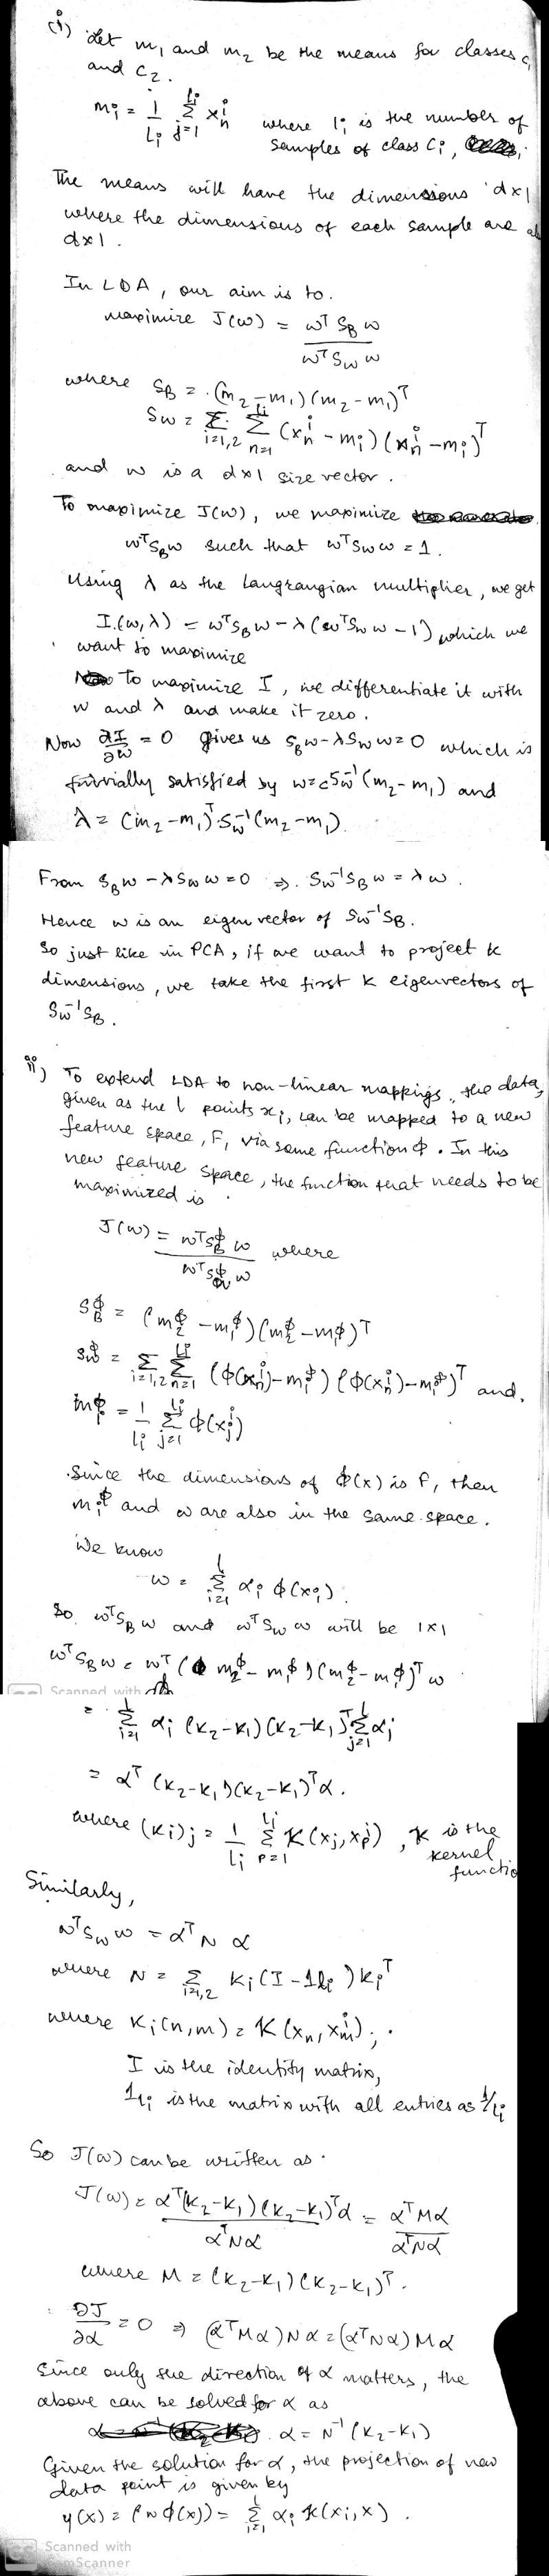 (i) Let m₁ and m₂ be the means for classes C₁
and C₂.
mᵢ = 1/Lᵢ Σ_{j=1}^{Lᵢ} xₙⁱ where lᵢ is the number of
samples of class Cᵢ,
The means will have the dimensions dx1
where the dimensions of each sample are
dx1.
In LDA, our aim is to.
maximize J(w) = wᵀ S_B w / wᵀ S_w w
where S_B = (m₂-m₁)(m₂-m₁)ᵀ
S_w = Σ_{i=1,2} Σ_{n=1}^{Li} (xₙⁱ - mᵢ)(xₙⁱ - mᵢ)ᵀ
and w is a dx1 size vector.
To maximize J(w), we maximize
wᵀS_Bw such that wᵀS_w w = 1.
Using λ as the Langrangian multiplier, we get
I(w,λ) = wᵀS_Bw - λ(wᵀS_w w - 1) which we
want to maximize
To maximize I, we differentiate it with
w and λ and make it zero.
Now ∂I/∂w = 0 gives us S_Bw-λS_w w=0 which is
trivially satisfied by w=cS_w⁻¹(m₂-m₁) and
λ = (m₂-m₁)ᵀ·S_w⁻¹(m₂-m₁).
From S_Bw - λS_w w = 0 ⇒. S_w⁻¹S_B w = λw.
Hence w is an eigen vector of S_w⁻¹S_B.
So just like in PCA, if we want to project k
dimensions, we take the first k eigenvectors of
S_w⁻¹S_B.
ii) To extend LDA to non-linear mappings, the data,
given as the l points xᵢ, can be mapped to a new
feature space, F, via some function ϕ. In this
new feature space, the function that needs to be
maximized is
J(w) = wᵀS_B^ϕ w / wᵀS_w^ϕ w where
S_B^ϕ = (m₂^ϕ - m₁^ϕ)(m₂^ϕ - m₁^ϕ)ᵀ
S_w^ϕ = Σ_{i=1,2} Σ_{n=1}^{Li} (ϕ(xₙⁱ)-mᵢ^ϕ)(ϕ(xₙⁱ)-mᵢ^ϕ)ᵀ and,
mᵢ^ϕ = 1/lᵢ Σ_{j=1}^{Li} ϕ(xⱼⁱ)
Since the dimensions of ϕ(x) is F, then
mᵢ^ϕ and w are also in the same space.
We know
w = Σ_{i=1}^{l} αᵢ ϕ(xᵢ)
So wᵀS_B w and wᵀS_w w will be 1x1
wᵀS_B w = wᵀ(m₂^ϕ - m₁^ϕ)(m₂^ϕ - m₁^ϕ)ᵀ w
Scanned with
= Σ_{i=1}^{l} αᵢ (K₂-K₁)(K₂-K₁)ᵀ Σ_{j=1}^{l} αⱼ
= αᵀ(K₂-K₁)(K₂-K₁)ᵀα.
where (Kᵢ)ⱼ = 1/Lᵢ Σ_{p=1}^{Li} K(xⱼ, xₚⁱ), K is the
kernel
functio
Similarly,
wᵀS_w w = αᵀ N α
where N = Σ_{i=1,2} Kᵢ(I - 1_{lᵢ})Kᵢᵀ
where Kᵢ(n,m) = K(xₙ, xₘⁱ),
I is the identity matrix,
1_{lᵢ} is the matrix with all entries as 1/lᵢ
So J(w) can be written as
J(w) = αᵀ(K₂-K₁)(K₂-K₁)ᵀα / αᵀNα = αᵀMα / αᵀNα
where M = (K₂-K₁)(K₂-K₁)ᵀ.
∂J/∂α = 0 ⇒ (αᵀMα)Nα = (αᵀNα)Mα
Since only the direction of α matters, the
above can be solved for α as
α = N⁻¹(K₂-K₁)
Given the solution for α, the projection of new
data point is given by
y(x) = (wϕ(x)) = Σ_{i=1}^{l} αᵢ K(xᵢ, x).
Scanned with
CamScanner